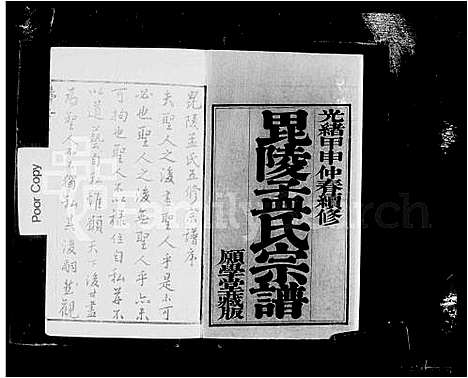 光緒甲申仲春續修
毘陵孟氏宗譜
願學堂義版
毘陵孟氏五修宗譜序
夫聖人之後盡聖人乎是不可
必也聖人之後無聖人乎亦未
可拘也聖人不以樣住自私其不
以道藝自私雖顯天下後世盡
為聖獨私其後嗣哉觀
Poor Copy